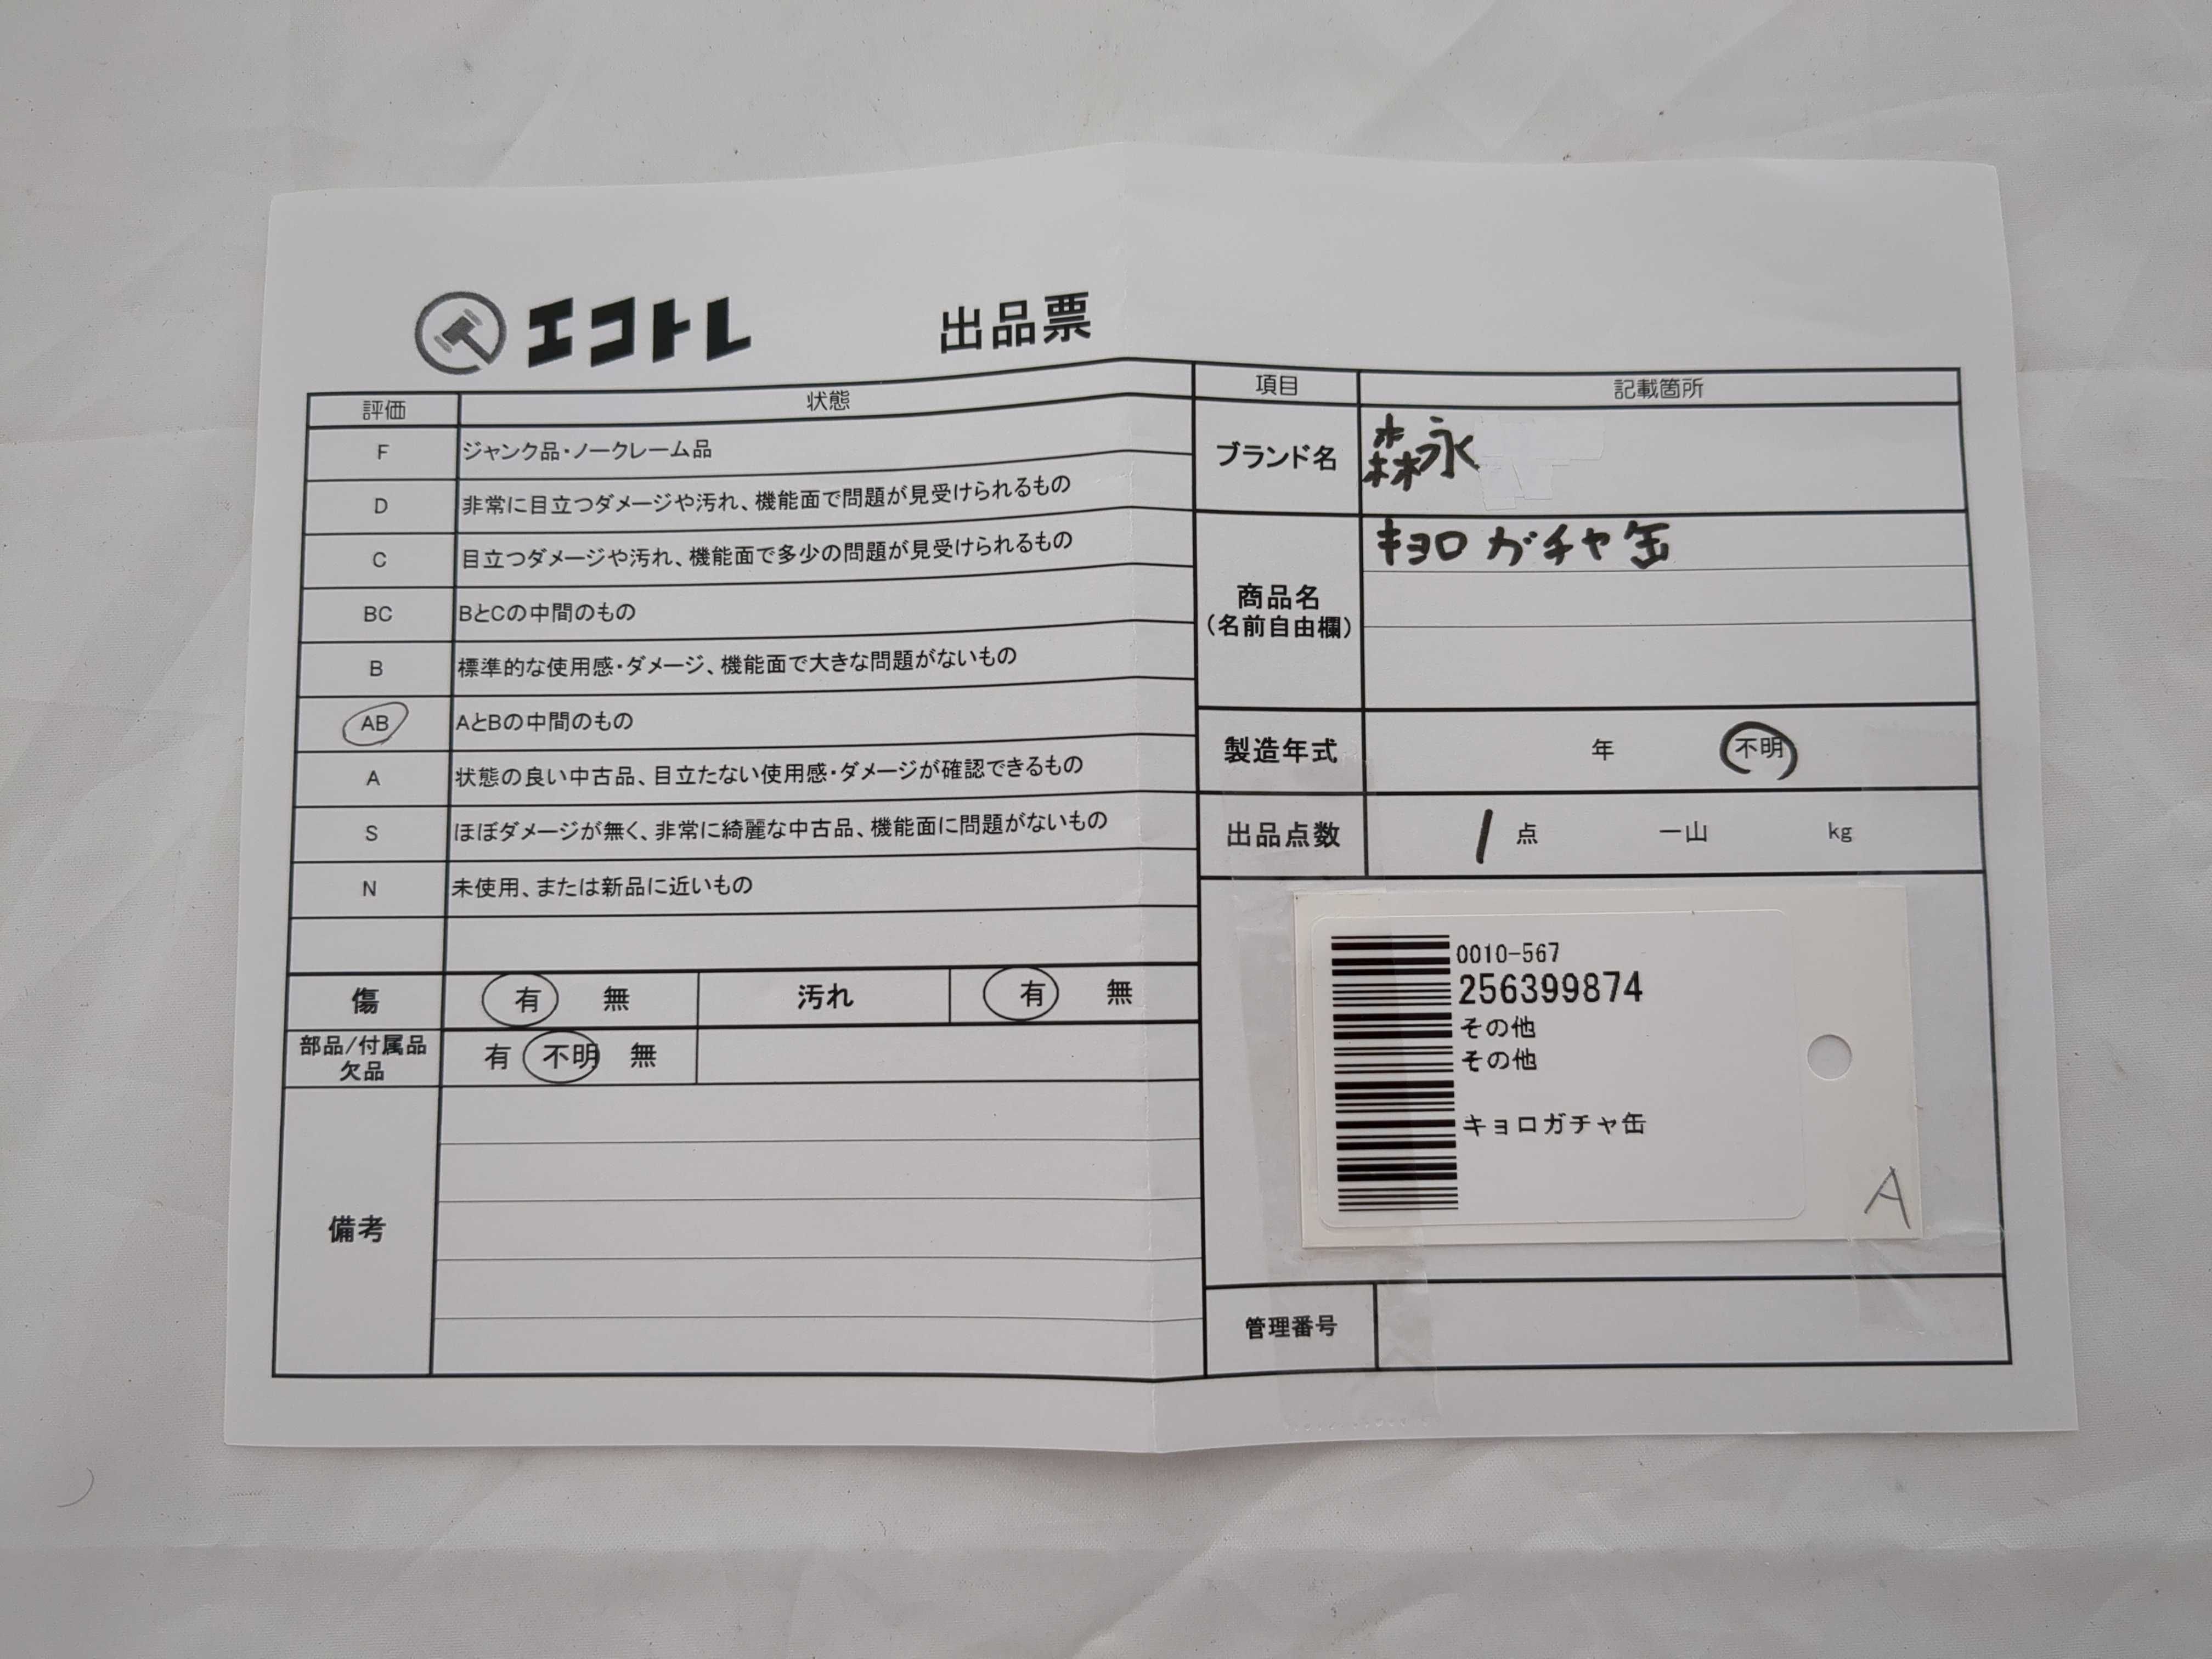 エコトレ 出品票
評価 状態
F ジャンク品・ノークレーム品
D 非常に目立つダメージや汚れ、機能面で問題が見受けられるもの
C 目立つダメージや汚れ、機能面で多少の問題が見受けられるもの
BC BとCの中間のもの
B 標準的な使用感・ダメージ、機能面で大きな問題がないもの
AB AとBの中間のもの
A 状態の良い中古品、目立たない使用感・ダメージが確認できるもの
S ほぼダメージが無く、非常に綺麗な中古品、機能面に問題がないもの
N 未使用、または新品に近いもの
傷 有 無 汚れ 有 無
部品/付属品
欠品 有 不明 無
備考
項目 記載箇所
ブランド名 森永
商品名
(名前自由欄)
キョロガチャ缶
製造年式 年 不明
出品点数 1 点 一山 kg
0010-567
256399874
その他
その他
キョロガチャ缶
A
管理番号